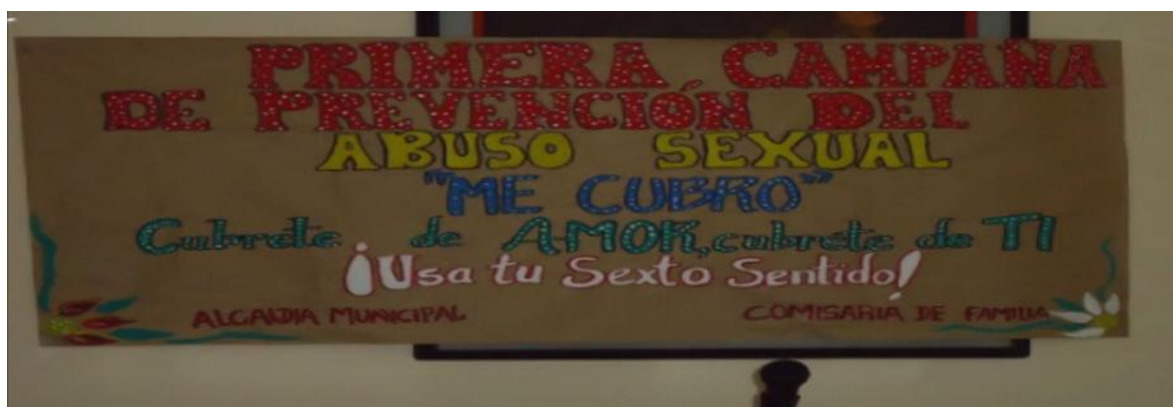 PRIMERA CAMPAÑA
DE PREVENCIÓN DEL
ABUSO SEXUAL
"ME CUBRO"
Cubrete de AMOR, cubrete de TI
¡Usa tu Sexto Sentido!
ALCALDIA MUNICIPAL COMISARIA DE FAMILIA